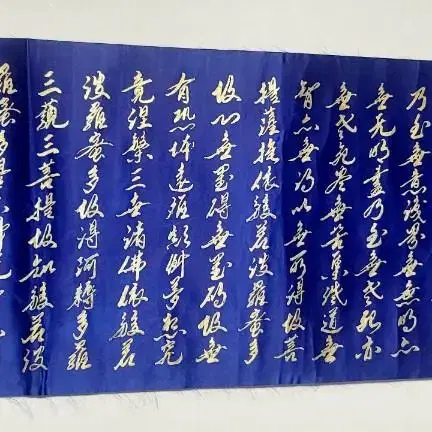 乃至無意識界無無明亦
無無明盡乃至無老死亦
無老死盡無苦集滅道無
智亦無得以無所得故菩
提薩埵依般若波羅蜜多
故心無罣礙無罣礙故無
有恐怖遠離顛倒夢想究
竟涅槃三世諸佛依般若
波羅蜜多故得阿耨多羅
三藐三菩提故知般若波
羅蜜多是